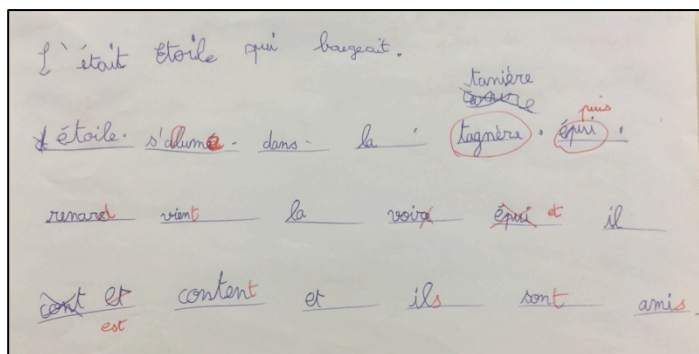 L'était étoile qui bougeait.
tanière
puis
étoile. s'aluma. dans. la tagnère. épui.
renard vient la voire épui et il
cont et content et ils sont amis.
est